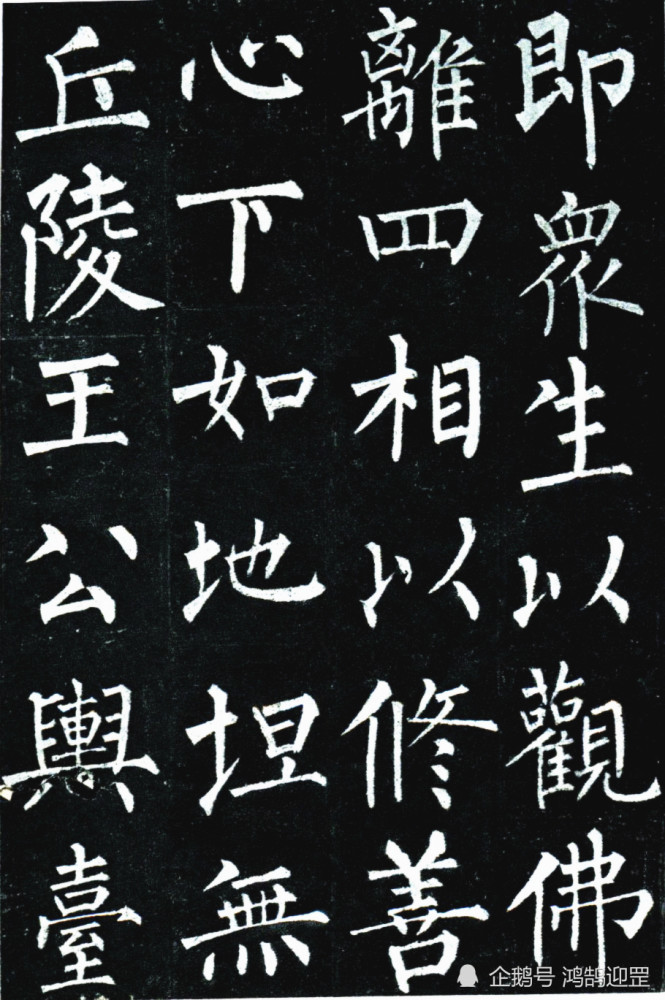 即衆生以觀佛
離四相以修善
心下如地坦無
丘陵王公輿臺
企鹅号 鸿鹄迎罡